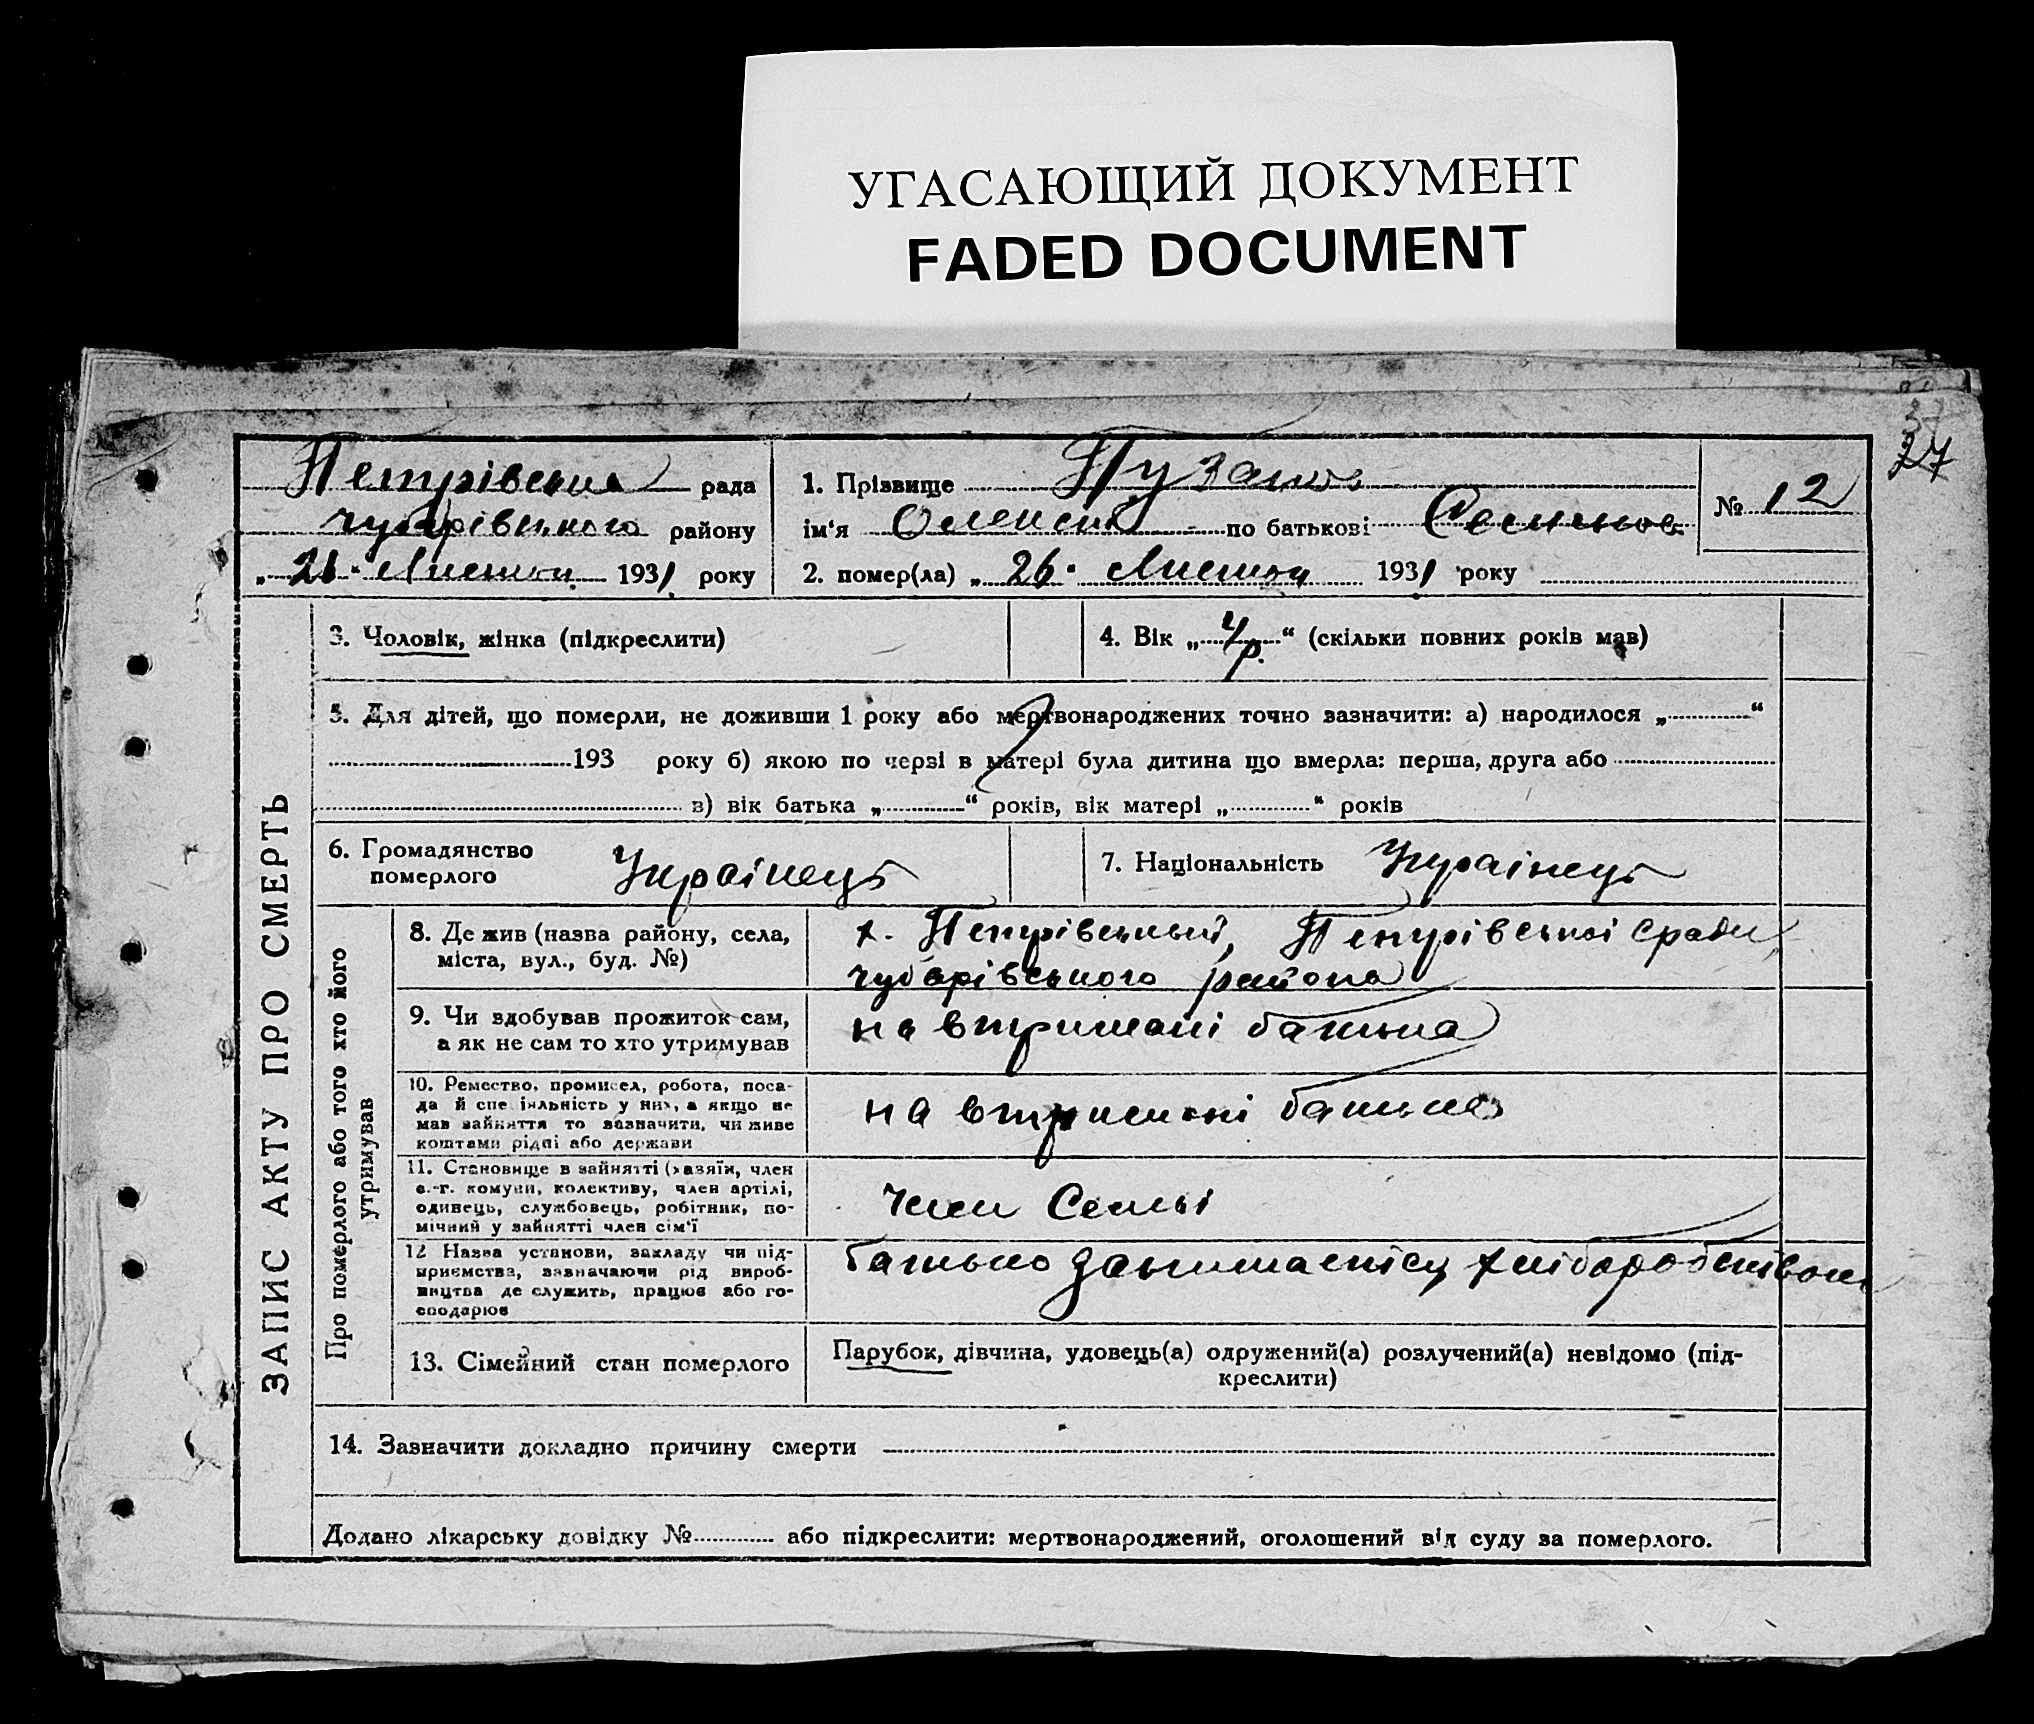 УГАСАЮЩИЙ ДОКУМЕНТ
FADED DOCUMENT
27
Петрівська рада
чубарівського району
„26“ Листоп. 1931 року
1. Прізвище Пузанов
ім‘я Олексій по батькові
2. помер(ла) „26“ Листоп 1931 року
№ 12
ЗАПИС АКТУ ПРО СМЕРТЬ
3. Чоловік, жінка (підкреслити)
4. Вік „4 р.“ (скільки повних років мав)
5. Для дітей, що померли, не доживши 1 року або мертвонароджених точно зазначити: а) народилося „ “
193 року б) якою по черзі в матері була дитина що вмерла: перша, друга або
в) вік батька „ “ років, вік матері „ “ років
6. Громадянство
померлого
Українець
7. Національність Українець
Про померлого або того хто його
утримував
8. Де жив (назва району, села,
міста, вул., буд. №)
х. Петрівський, Петрівської сради
чубарівського района
9. Чи здобував прожиток сам,
а як не сам то хто утримував
на втримані батька
10. Ремество, промисел, робота, поса-
да й спеціяльність у них, а якщо не
мав зайняття то зазначити, чи живе
коштами рідні або держави
на втримані батька
11. Становище в зайнятті (хазяїн, член
с.-г. комуни, колективу, член артілі,
одинець, службовець, робітник, по-
мічний у зайнятті член сім'ї
член Семьї
12 Назва установи, закладу чи під-
приємства, зазначаючи рід вироб-
ництва де служить, працює або го-
сподарює
батько хліборобством
13. Сімейний стан померлого
Парубок, дівчина, удовець(а) одружений(а) розлучений(а) невідомо (під-
креслити)
14. Зазначити докладно причину смерти
Додано лікарську довідку № або підкреслити: мертвонароджений, оголошений від суду за померлого.